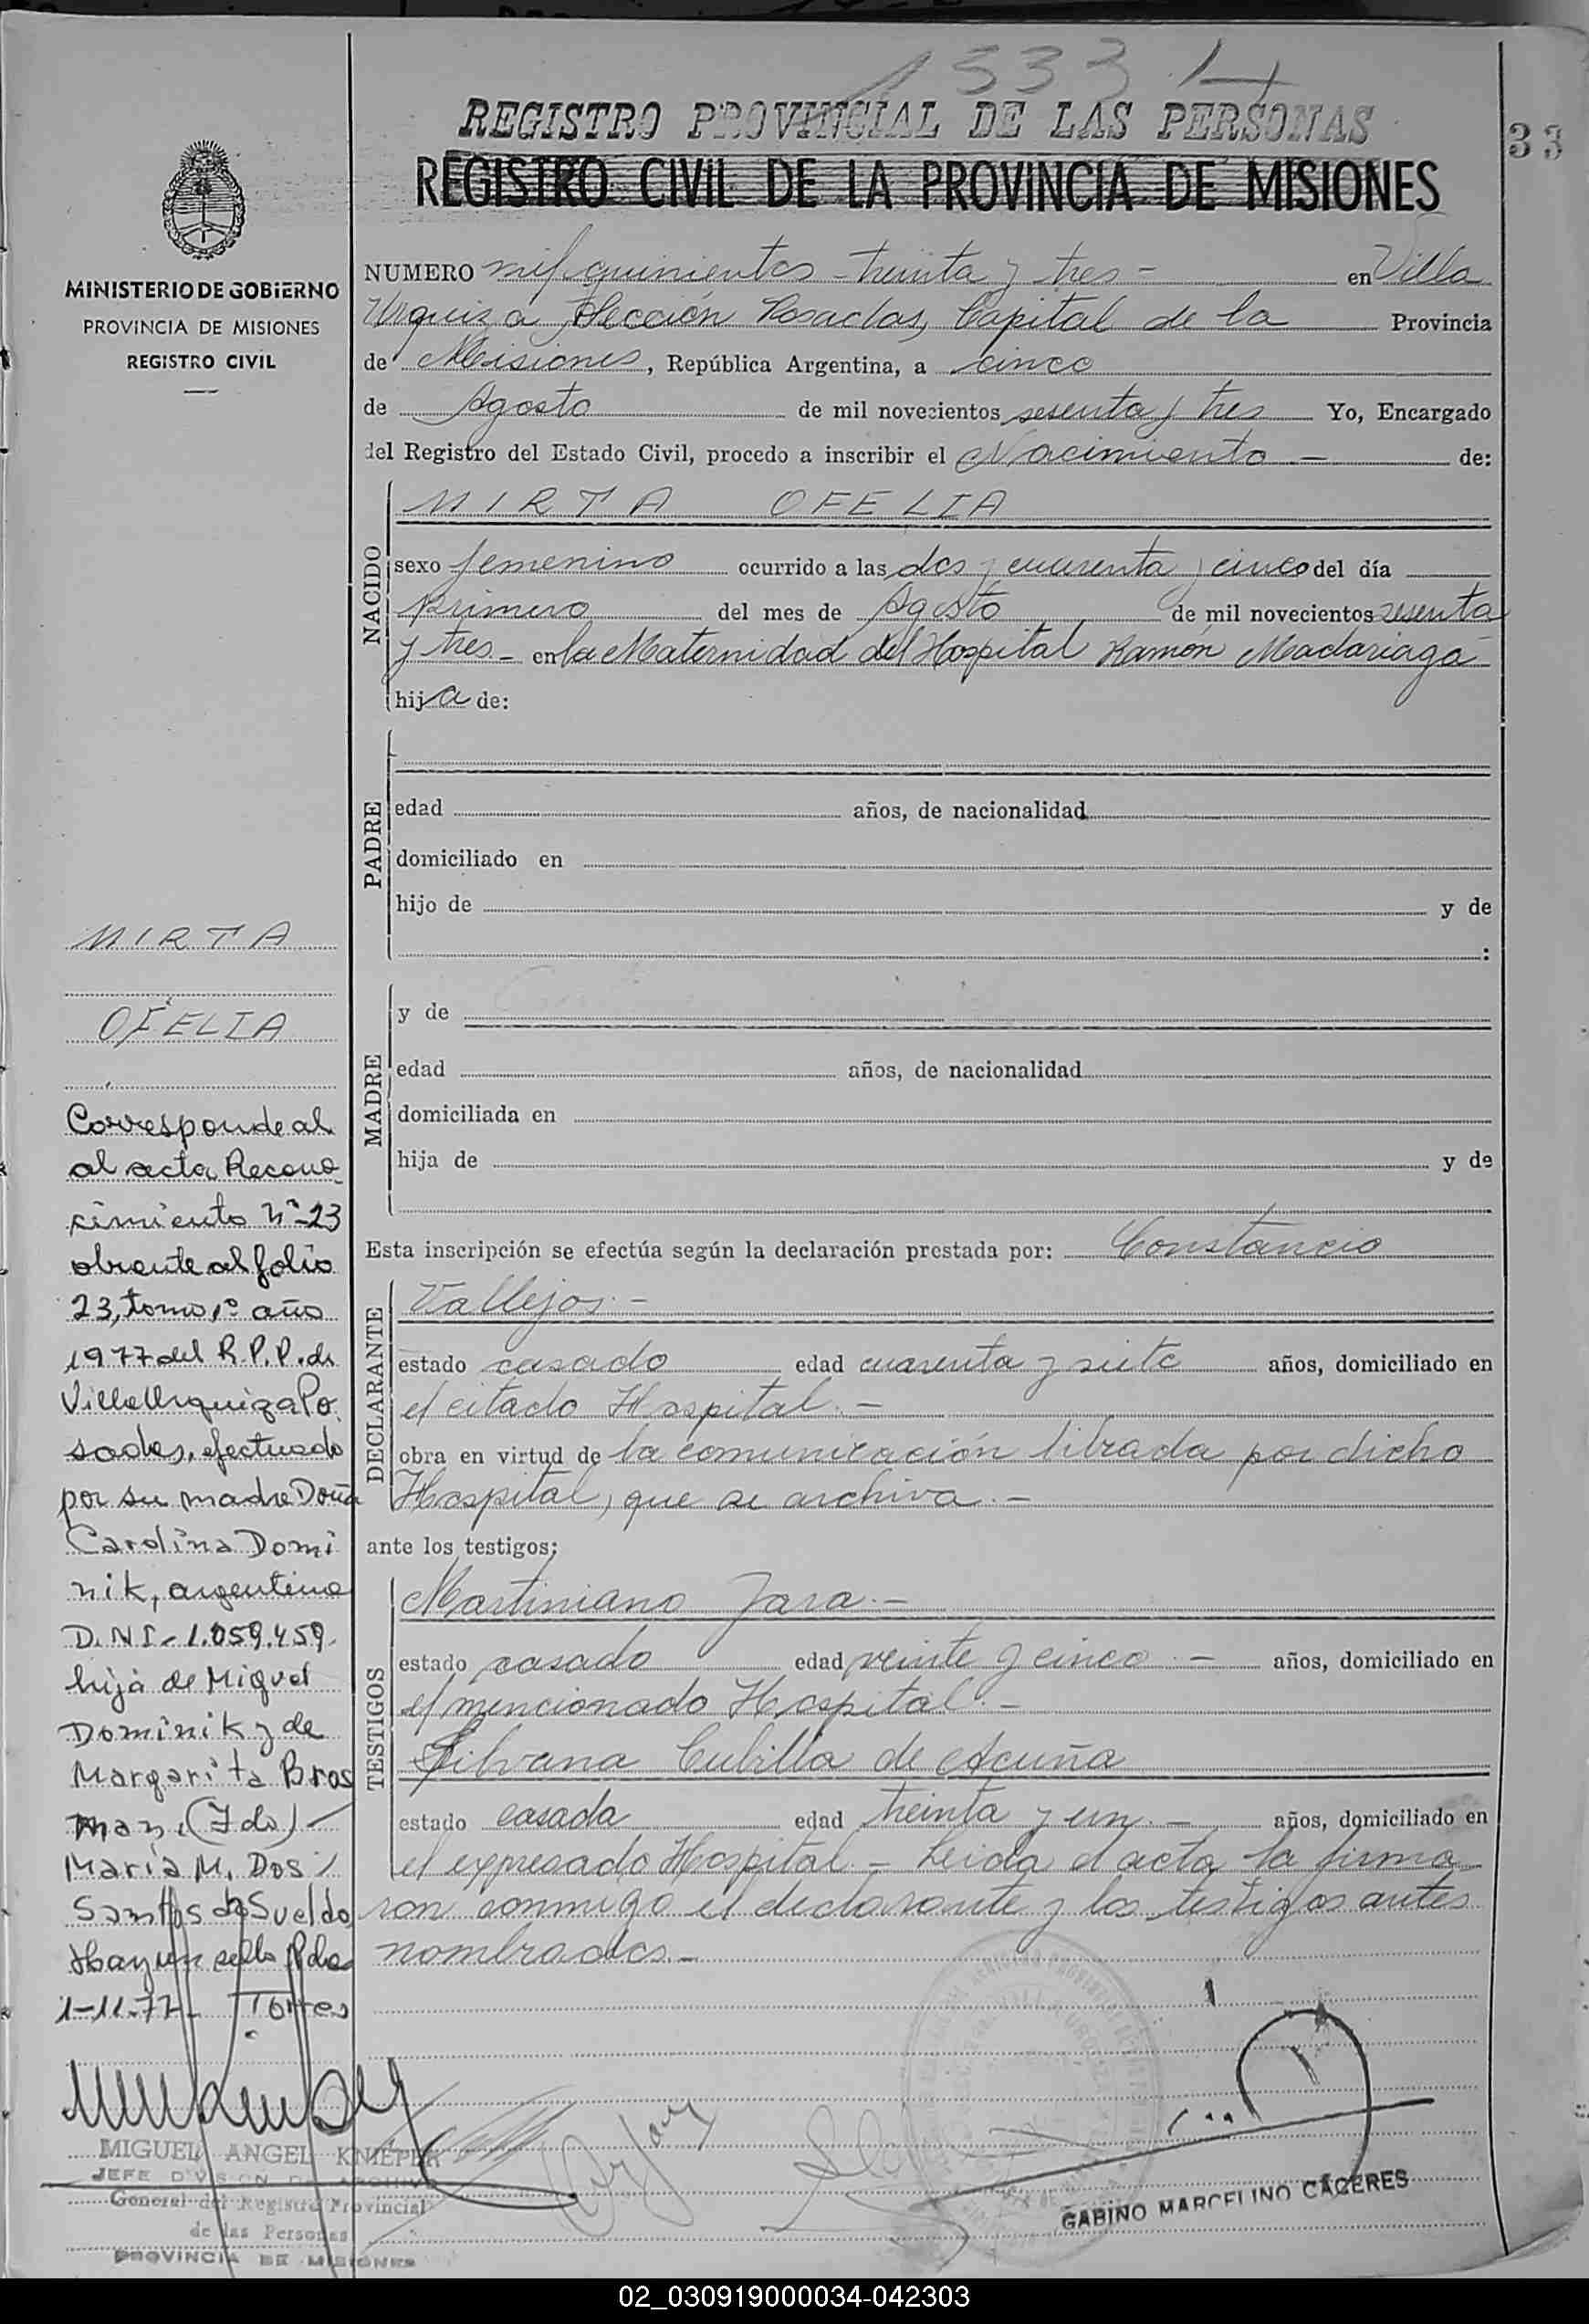 1533
33
REGISTRO PROVINCIAL DE LAS PERSONAS
REGISTRO CIVIL DE LA PROVINCIA DE MISIONES
MINISTERIO DE GOBIERNO
PROVINCIA DE MISIONES
REGISTRO CIVIL
NUMERO mil quinientos - treinta y tres - en Villa
Urquiza, Sección Posadas, Capital de la Provincia
de Misiones, República Argentina, a cinco
de Agosto de mil novecientos sesenta y tres Yo, Encargado
del Registro del Estado Civil, procedo a inscribir el Nacimiento - de:
NACIDO
MIRTA OFELIA
sexo femenino ocurrido a las dos y cuarenta y cinco del día
primero del mes de Agosto de mil novecientos sesenta
y tres.- en la Maternidad del Hospital Ramón Madariaga
hija de:
PADRE
edad años, de nacionalidad
domiciliado en
hijo de y de
:
MADRE
y de
edad años, de nacionalidad
domiciliada en
hija de y de
Esta inscripción se efectúa según la declaración prestada por: Constancio
DECLARANTE
Vallejos.-
estado casado edad cuarenta y siete años, domiciliado en
el citado Hospital.-
obra en virtud de la comunicación librada por dicho
Hospital, que se archiva.-
ante los testigos;
TESTIGOS
Martiniano Jara.-
estado casado edad veinte y cinco.- años, domiciliado en
el mencionado Hospital.-
Silvana Cubilla de Acuña
estado casada edad treinta y un.- años, domiciliado en
el expresado Hospital.- Leida el acta, la firma
ron conmigo el declarante y los testigos antes
nombrados.-
MIRTA
OFELIA
Corresponde al
al acta Recono-
cimiento Nº 23
obrante al folio
23, tomo 1º año
1977 del R.P.P. de
Villa Urquiza Po
sadas, efectuado
por su madre Doña
Carolina Domi
nik, argentina
D.N.I. 1.059.459
hija de Miguel
Dominik y de
Margarita Bros
man, (Fdo)-
María M. Dos
Santos de Sueldo
Hay un sello Pdas
1-11-77- Torres
MIGUEL ANGEL KNIEPER
JEFE DIVISION DE ARCHIVO
General del Registro Provincial
de las Personas
PROVINCIA DE MISIONES
GABINO MARCELINO CACERES
02_030919000034-042303